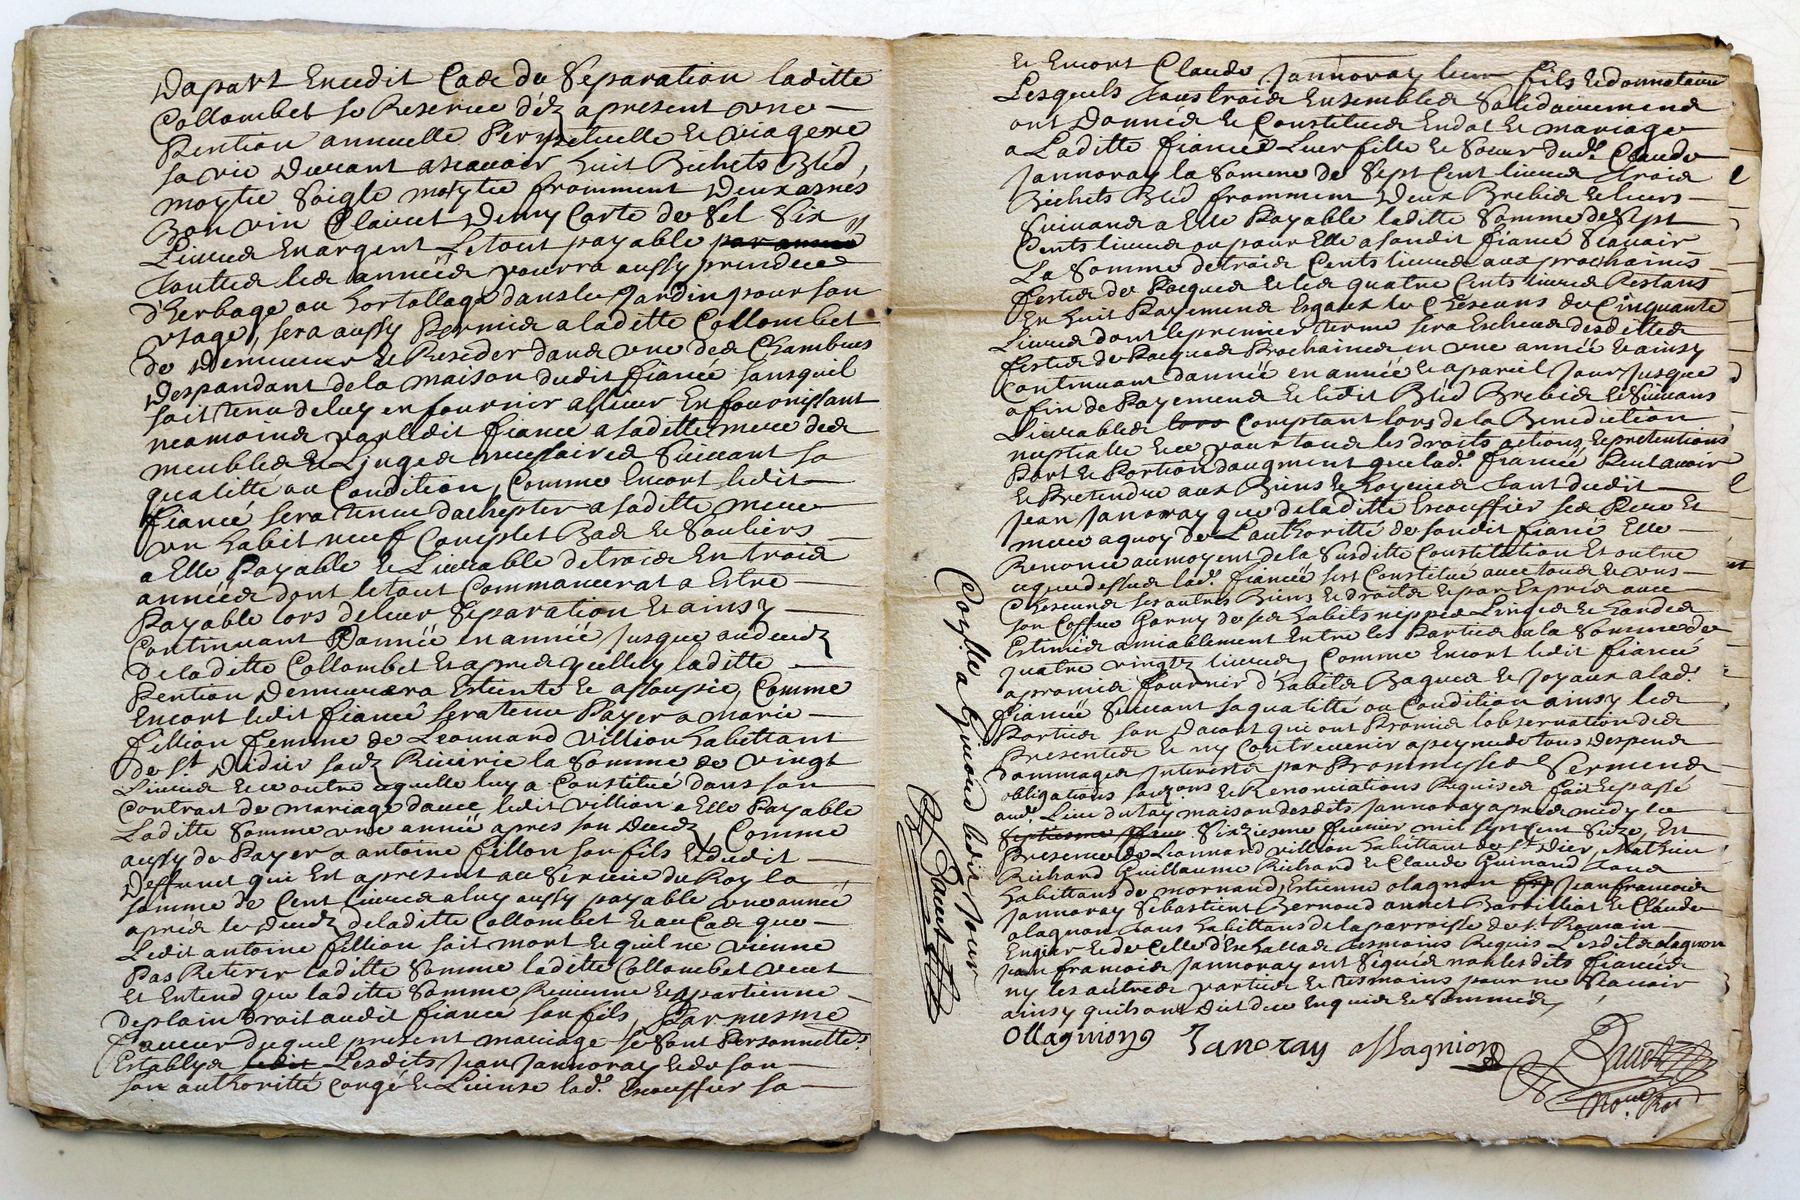 Dapart Encedit Cas de Separation laditte
Collombet se Reserve déz apresent une
Pention annuelle Perpetuelle et viagere
sa vie durant ascavoir huit Bichets Bled,
moytie Soigle moytie fromment Deux asnes
Bon vin Clairet Demy Carte de Sel Six
Livres En argent Le tout payable par année
touttes les années pourra aussy prendre
d'herbage ou hortollage dans le Jardin pour son
usage, sera aussy Permis a laditte Collombet
de Demeurer et Resider dans une des Chambres
Despandant de la maison dudit fiancé sans quil
soit tenu de luy en fournir allieur En fournissant
neamoins par ledit fiancé a saditte mere des
meubles et Linges necessaires Suivant sa
qualitté ou Condition, Comme Encort ledit
fiancé sera tenu dachepter a saditte mere
un habit neuf Complet Bas et Souliers
a Elle Payable et Livrable de trois En trois
années dont le tout Commancerat a Estre
Payable lors de leur Separation Et ainsy
Continuant Dannée en année Jusque au decedz
De laditte Collombet Et apres ycelluy laditte
Pention Demeurera Esteinte et assoupie, Comme
Encort ledit fiancé sera tenu Payer a marie
fillion femme de Leonnard Villion habittant
De St Didier souz Riverie la Somme de vingt
Livres Et ce outre cequelle luy a Constitué dans son
Contrat de mariage davec ledit villion a Elle Payable
Laditte Somme une année apres son Decedz, Comme
aussy de Payer a antoine fillon son fils Et dudit
Deffunct qui Est apresent au Service du Roy la
somme de Cent Livres a luy aussy payable une année
apres le Decedz de laditte Collombet Et au Cas que
Ledit antoine fillion soit mort Et quil ne vienne
Pas Retirer laditte Somme laditte Collombet veut
Et Entend que laditte Somme Revienne Et apartienne
de plain Droit audit fiancé son fils, Par mesme
faveur duquel present mariage se sont Personnellemt
Establys ledit Lesdits Jean Jannoray Et de son
son authoritté congé et License lad. Escoffier sa
et Encort Claude Jannoray leur fils et donnataire
Lesquels tous trois Ensembles Solidairement
ont Donnés et Constitués En dot et mariage
a Laditte fiancée Leur fille et Soeur dud. Claude
Jannoray la Somme de Sept Cent livres trois
Bichets Bled fromment Deux Brebis et leurs
Suivans a Elle Payable laditte Somme de Sept
Cents livres ou pour Elle a sondit fiancé Scavoir
La Somme de trois Cents livres aux prochaines
festes de Pacques Et les quatre Cents livres Restans
En huit Payemens Esgaux et Chescuns de Cinquante
Livres dont le premier terme sera Escheu esdittes
festes de Pacques Prochaines en une année Et ainsy
Continuant dannée en année Et apareil Jour Jusque
a fin de Payement Et ledit Bled Brebis et Suivans
Livrables lors Comptant lors de la Benediction
nuptialle Et ce pour tous les droits actions et pretentions
Part et Portion daugment que lad. fiancée Peut avoir
et Pretendre aux Biens et hoyeries tant dudit
Jean Jannoray que de laditte Escoffier ses Pere Et
mere a quoy de L'authoritté de sondit fiancé Elle
Renonce au moyent de la Susditte Constitution Et outre
ceque dessus lad. fiancée sest Constitué avec tous et uns
Chescuns ses autres Biens et droits Et par Exprés avec
son Coffre Garny de ses habits nippes Linges et hardes
Estimés amiablement Entre les Parties a la Somme de
quatre vingtz livres, Comme Encort ledit fiancé
a promis fournir d'habits Bagues et Joyaux a lad.
fiancée Suivant sa qualitté ou Condition ainsy les
Parties sen Dacort qui ont Promis lobservation des
Presentes et ny Contrevenir a peyne de tous despens
dommages Interests par Prommesses Serments
obligations Soumissions et Renonciations Requises fait Et passé
aud. Lieu du tay maison desdits Jannoray apres midy le
Septiesme fevr Sixziesme fevrier mil sept cent Seize, En
Presence de Leonnard villion habittant de St Dier, Mathieu
Richard Guillaume Richard et Claude Guinand tous
habittans de mornand, Estienne olagnon Jean francois
Jannoray Sebastient Bernoud annet Barrilliat et Claude
olagnon tous habittans de la parroisse de St Romain
En gier Et de Celle d'Eschallas tesmoins Requis Lesdits olagnon
Jean francois Jannoray ont Signés non lesdits fiancés
ny les autres parties et tesmoins pour ne Scavoir
ainsy quils ont Dit de ce Enquis et Sommés,
Ollagnion Janoray ollagnion
Not. Roy.